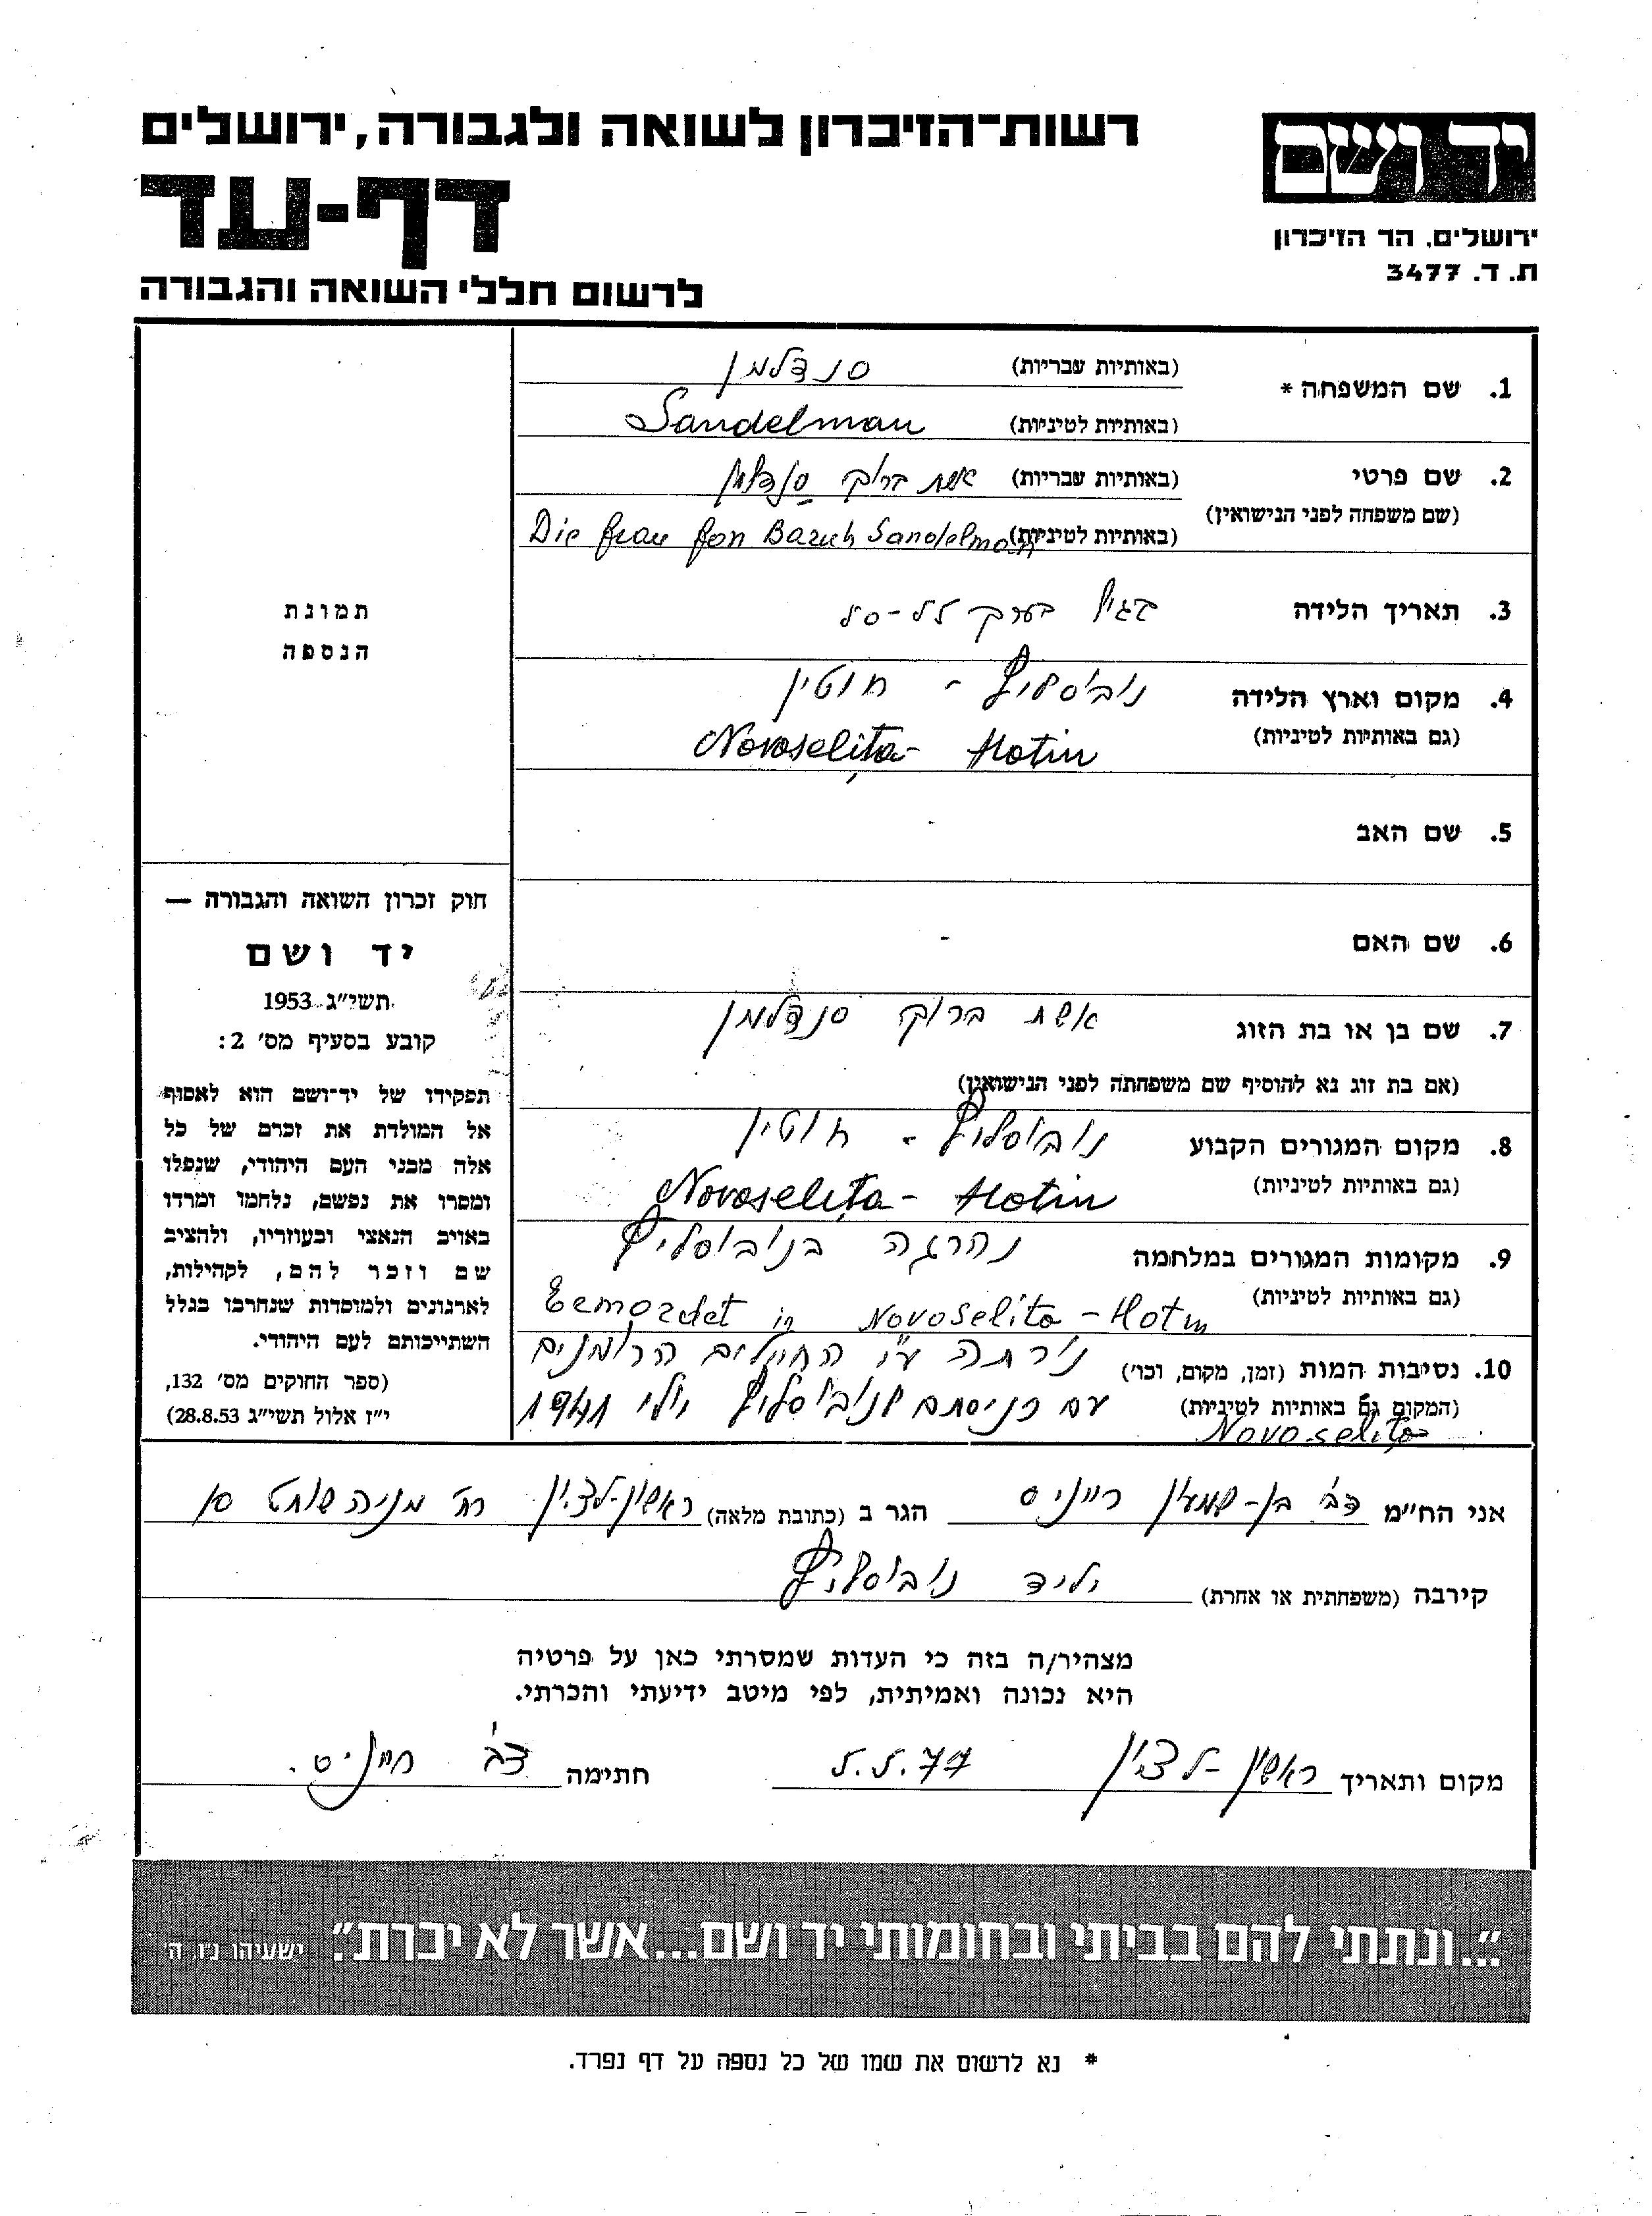 יד ושם
ירושלים, הר הזיכרון
ת. ד. 3477
רשות-הזיכרון לשואה ולגבורה, ירושלים
דף-עד
לרשום חללי השואה והגבורה
1. שם המשפחה * (באותיות עבריות) סנדלמן
(באותיות לטיניות) Sandelman
2. שם פרטי (באותיות עבריות) אשת ברוך סנדלמן
(שם משפחה לפני הנישואין)
(באותיות לטיניות) Die frau fon Baruh Sandelman
3. תאריך הלידה בגיל בערך 55-50
4. מקום וארץ הלידה נובוסליץ - חוטין
(גם באותיות לטיניות) Novoseliţa - Hotin
5. שם האב -
6. שם האם -
7. שם בן או בת הזוג אשת ברוך סנדלמן
(אם בת זוג נא להוסיף שם משפחתה לפני הנישואין)
8. מקום המגורים הקבוע נובוסליץ - חוטין
(גם באותיות לטיניות) Novoseliţa - Hotin
9. מקומות המגורים במלחמה נהרגה בנובוסליץ
(גם באותיות לטיניות) Ermordet in Novoselita - Hotin
10. נסיבות המות (זמן, מקום, וכו') נורתה ע"י החיילים הרומנים
(המקום גם באותיות לטיניות) עם כניסתם לנובוסליץ יולי 1941
Novoseliţa
תמונת
הנספה
חוק זכרון השואה והגבורה —
יד ושם
תשי"ג 1953
קובע בסעיף מס' 2:
תפקידו של יד-ושם הוא לאסוף
אל המולדת את זכרם של כל
אלה מבני העם היהודי, שנפלו
ומסרו את נפשם, נלחמו ומרדו
באויב הנאצי ובעוזריו, ולהציב
שם וזכר להם, לקהילות,
לארגונים ולמוסדות שנחרבו בגלל
השתייכותם לעם היהודי.
(ספר החוקים מס' 132,
י"ז אלול תשי"ג 28.8.53)
אני הח"מ דב בן-שמעון חייניס הגר ב (כתובת מלאה) ראשון-לציון רח' מניה שוחט
קירבה (משפחתית או אחרת) יליד נובוסליץ
מצהיר/ה בזה כי העדות שמסרתי כאן על פרטיה
היא נכונה ואמיתית, לפי מיטב ידיעתי והכרתי.
מקום ותאריך ראשון-לציון 5.5.77 חתימה דב חייניס.
"...ונתתי להם בביתי ובחומותי יד ושם...אשר לא יכרת". ישעיהו נ"ו, ה'
* נא לרשום את שמו של כל נספה על דף נפרד.